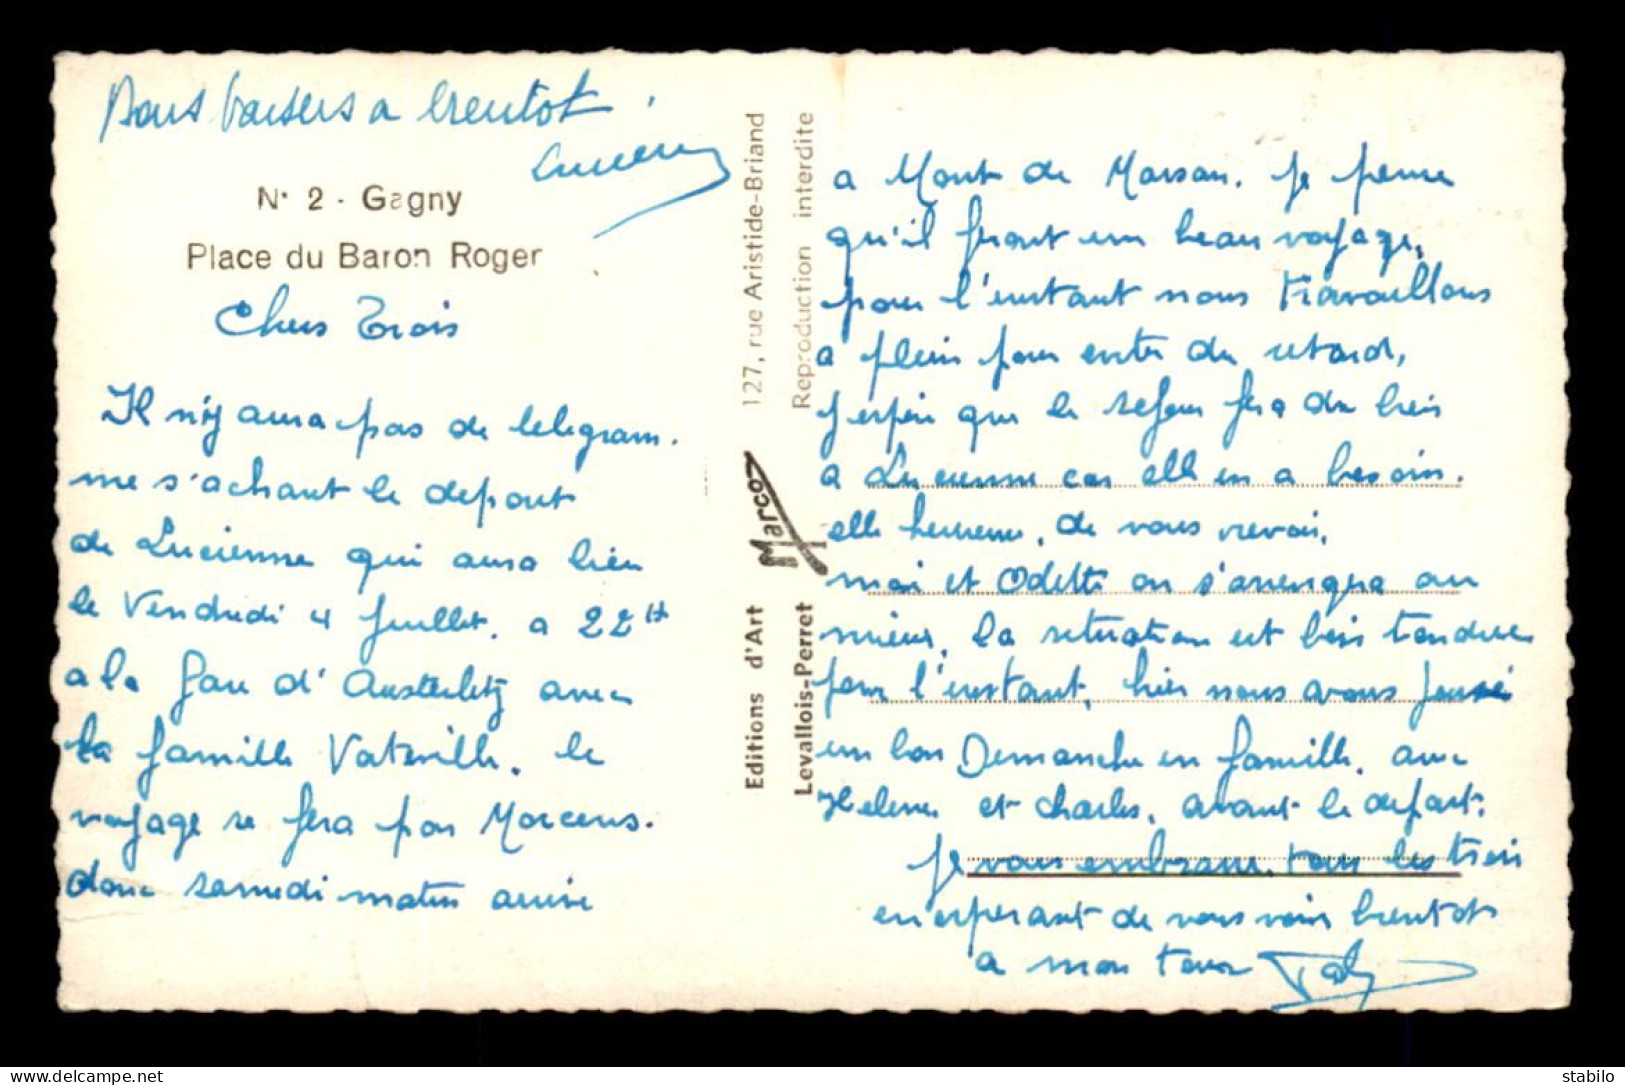 Bons baisers a bientot
Lucienne
N° 2 - Gagny
Place du Baron Roger
Chers Trois
Il n'y aura pas de telegram.
me s'achant le depart
de Lucienne qui aura lieu
le Vendredi 4 Juillet. a 22H
a la Gare d'Austerlitz avec
la famille Vateville. le
voyage se fera par Morcens.
donc samedi matin arrivé
a Mont de Marsan. je pense
qu'il feront un beau voyage,
pour l'instant nous travaillons
a plein pour eviter du retard,
j'espère que le sejour fera du bien
a Lucienne car elle en a besoin.
elle heureuse, de vous revoir,
moi et Odette on s'arrengera au
mieux, la situation est bien tendue
pour l'instant, hier nous avons passé
un bon Demanche en famille, avec
Helene et Charles, avant le depart.
Je vous embrasse, tous les trois
en esperant de vous voir bientot
a mon tour
127, rue Aristide-Briand
Reproduction interdite
Marco
Editions d'Art
Levallois-Perret
The stamp collection
stabilo